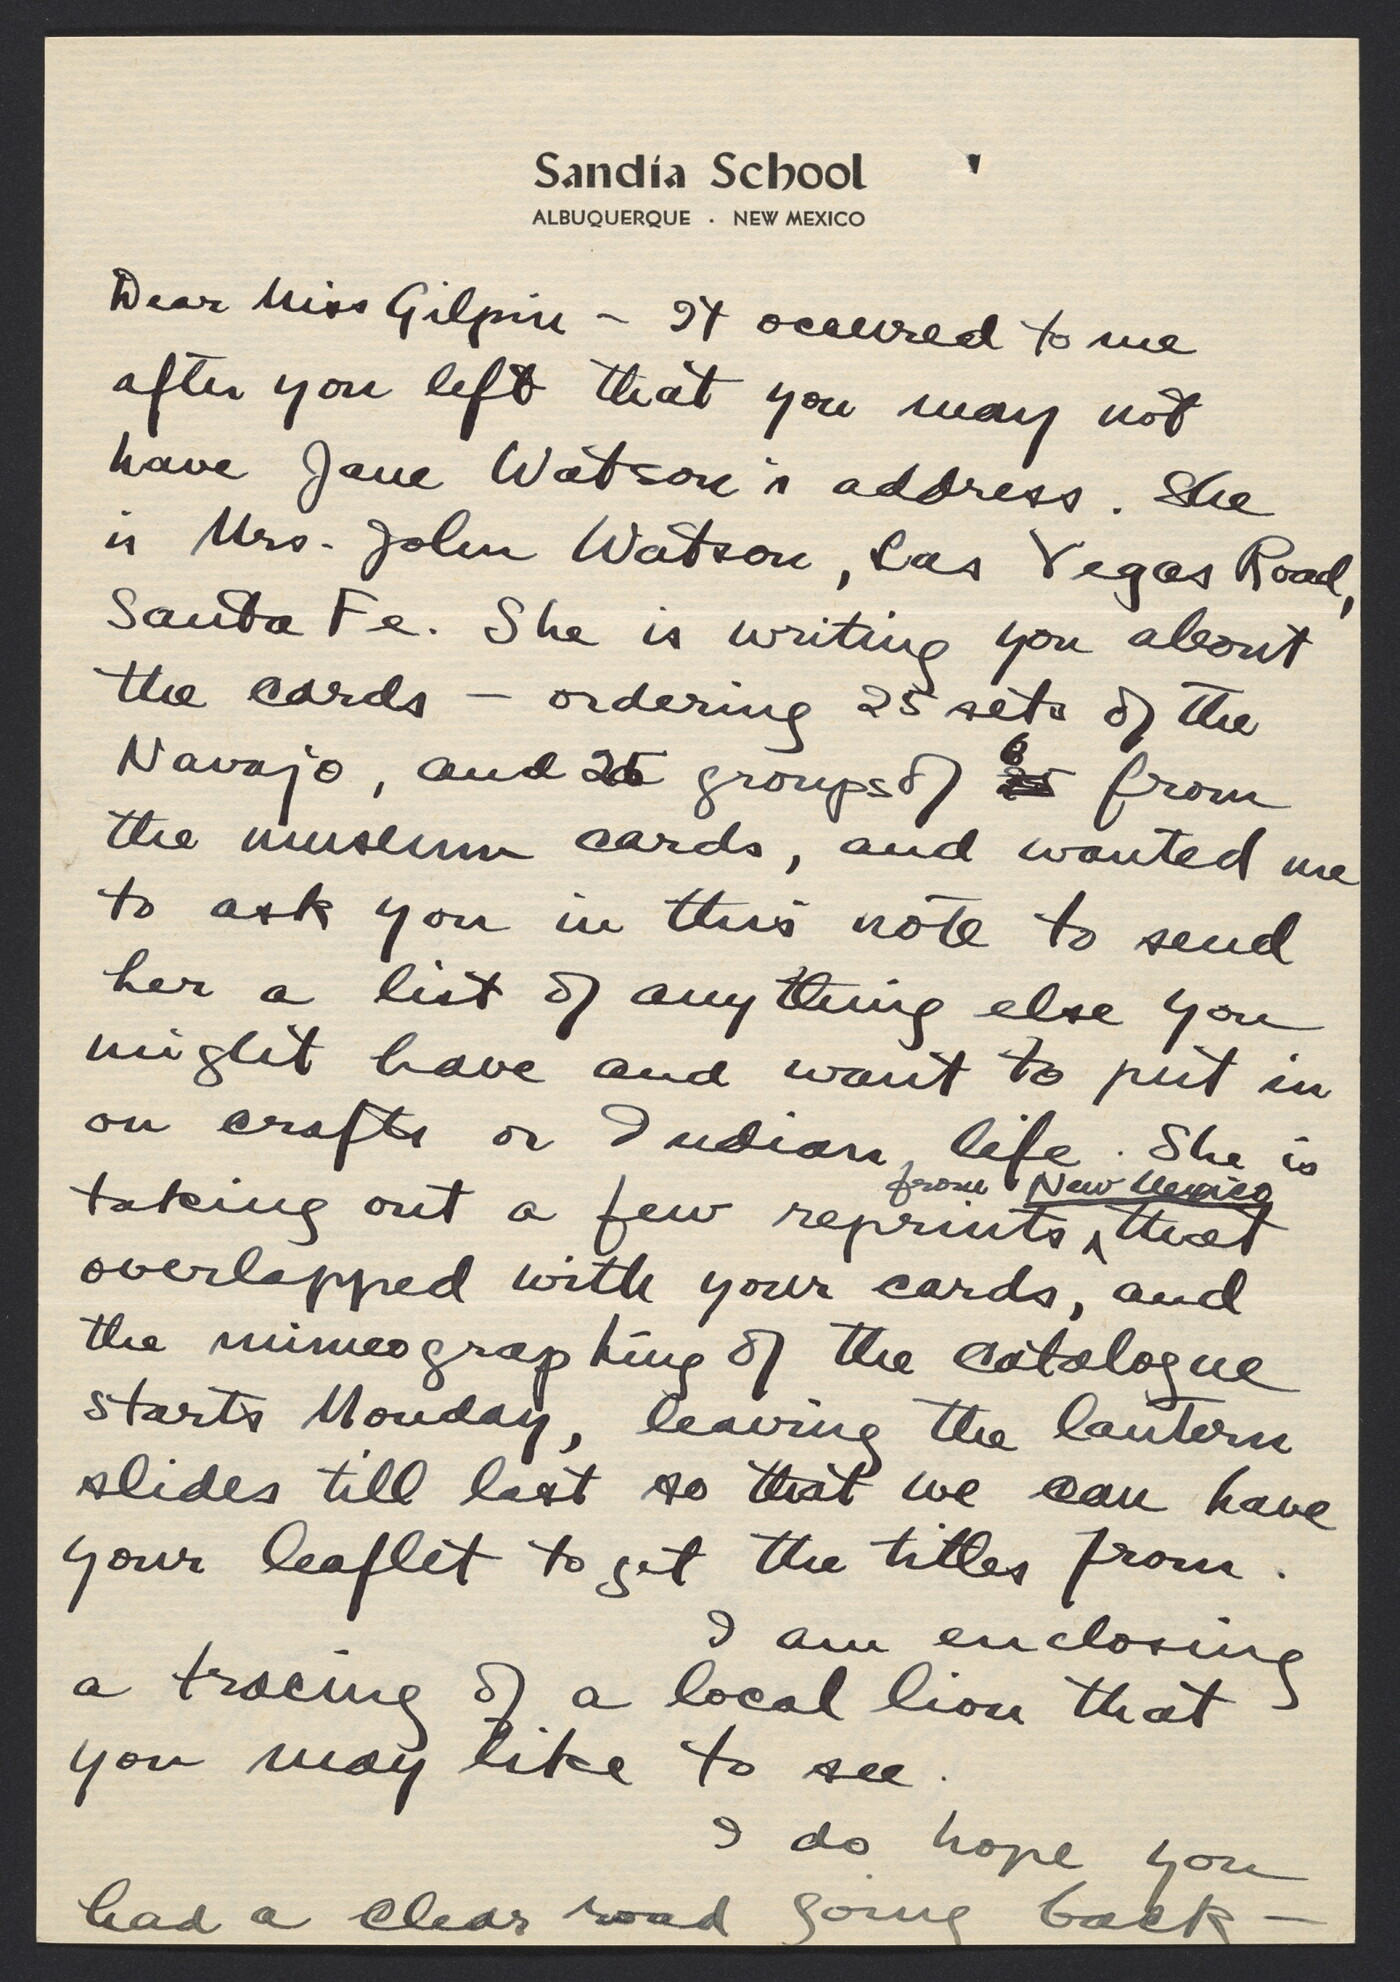 Sandia School
ALBUQUERQUE · NEW MEXICO
Dear Miss Gilpin – It occured to me
after you left that you may not
have Jane Watson's address. She
is Mrs. John Watson, Las Vegas Road,
Santa Fe. She is writing you about
the cards – ordering 25 sets of the
Navajo, and 25 groups of 6 from
the museum cards, and wanted me
to ask you in this note to send
her a list of anything else you
might have and want to put in
on crafts or Indian life. She is
from New Mexico
taking out a few reprints ^ that
overlapped with your cards, and
the mimeographing of the catalogue
starts Monday, leaving the lantern
slides till last so that we can have
your leaflet to get the titles from.
I am enclosing
a tracing of a local lion that
you may like to see.
I do hope you
had a clear road going back –